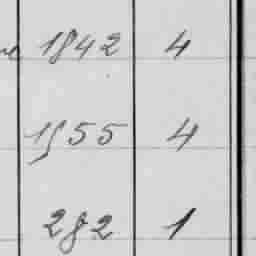 1842 4
1955 4
282 1